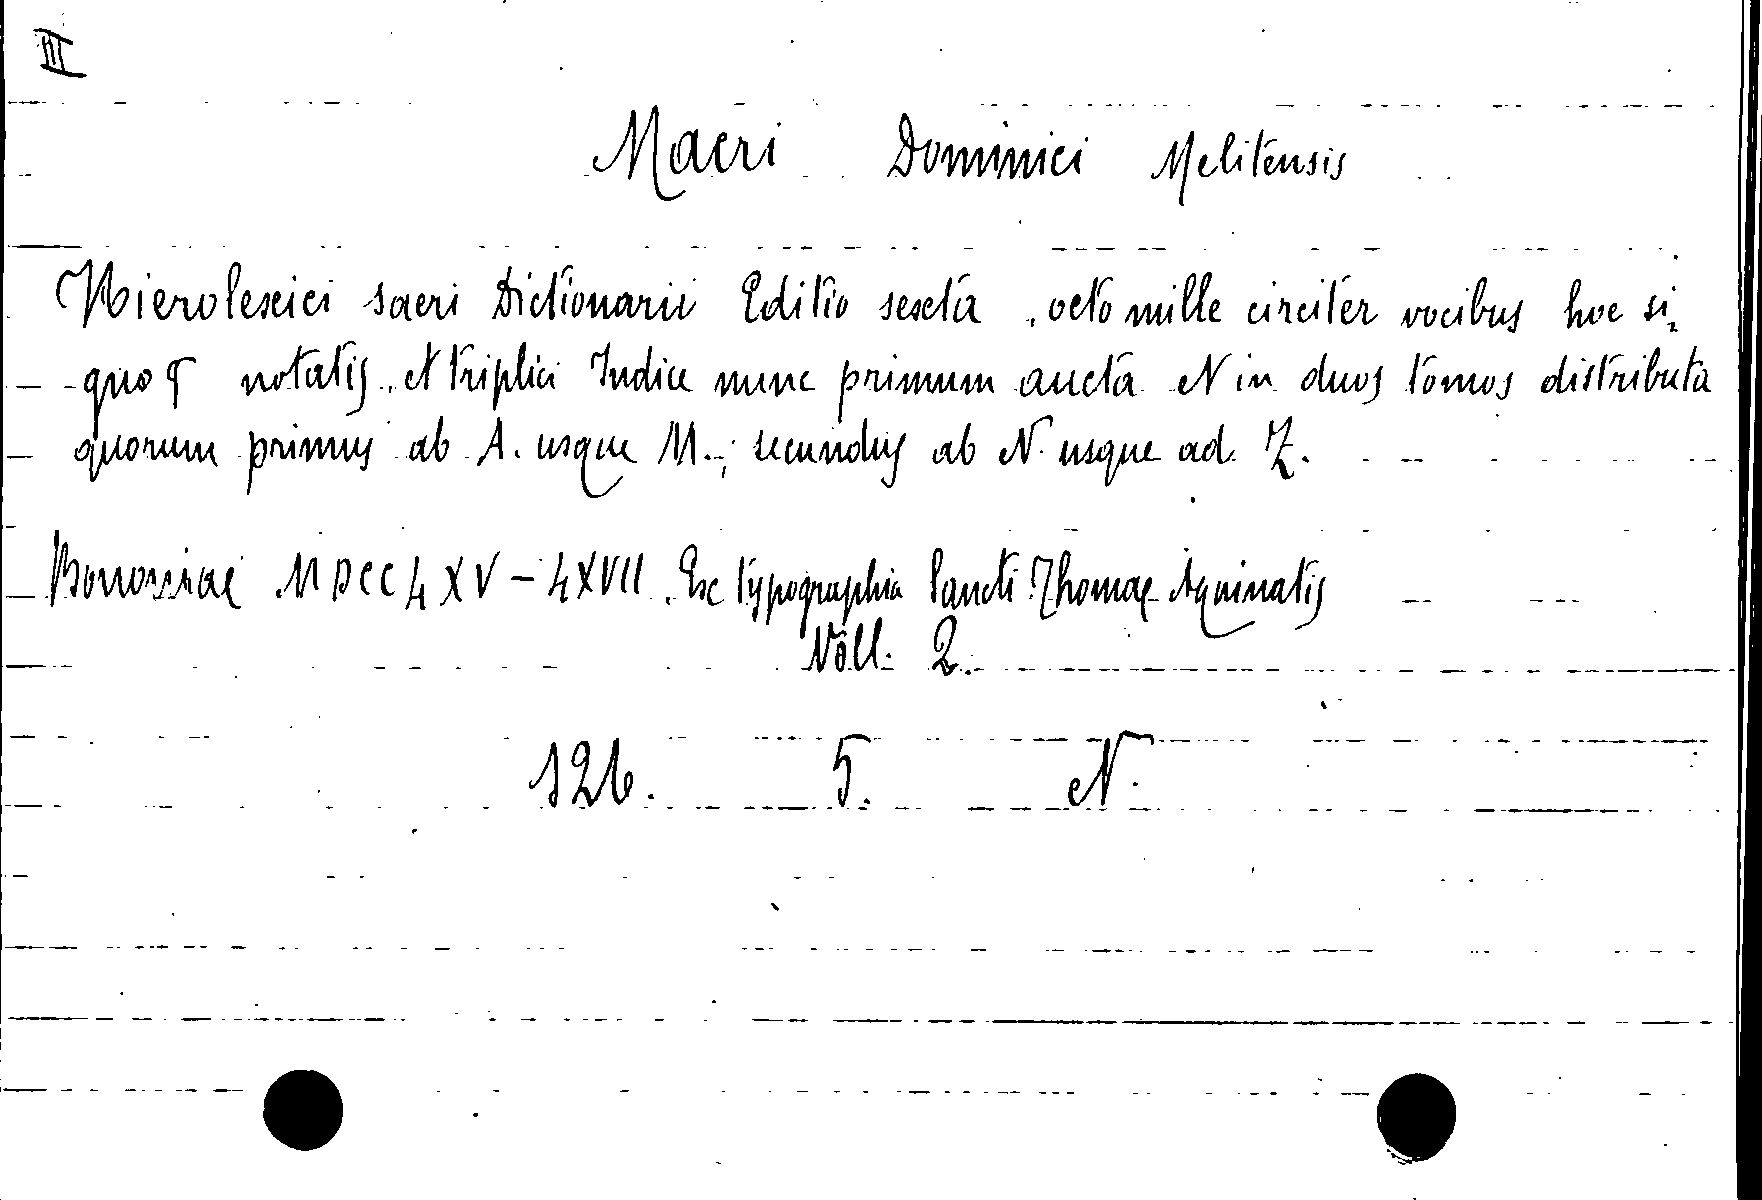 III
Macri Dominici Melitensis
Hierolexici sacri Dictionarii Editio sexta, octo mille circiter vocibus hoc si,
gno ¶ notatis, et triplici Indice nunc primum aucta et in duos tomos distributa
quorum primus ab A. usque M.; secundus ab N. usque ad Z.
Bononiae MDCCLXV – LXVII. Ex typographia Sancti Thomae Aquinatis
Voll. 2.
126. 5. N.